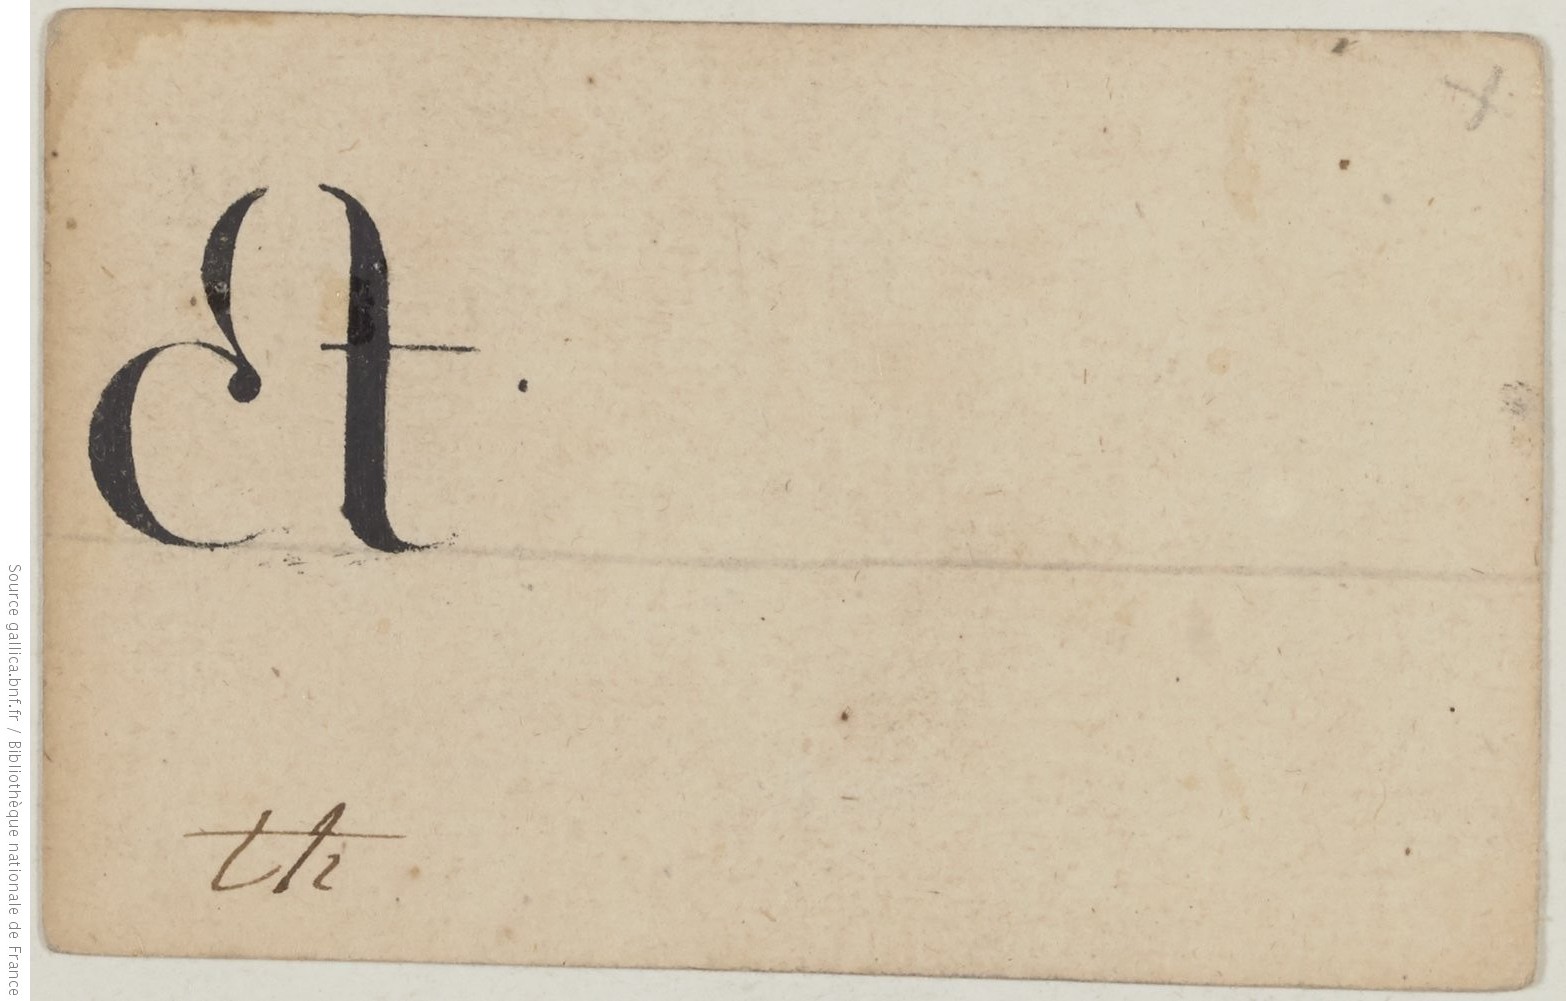 et.
th
Source gallica.bnf.fr / Bibliothèque nationale de France